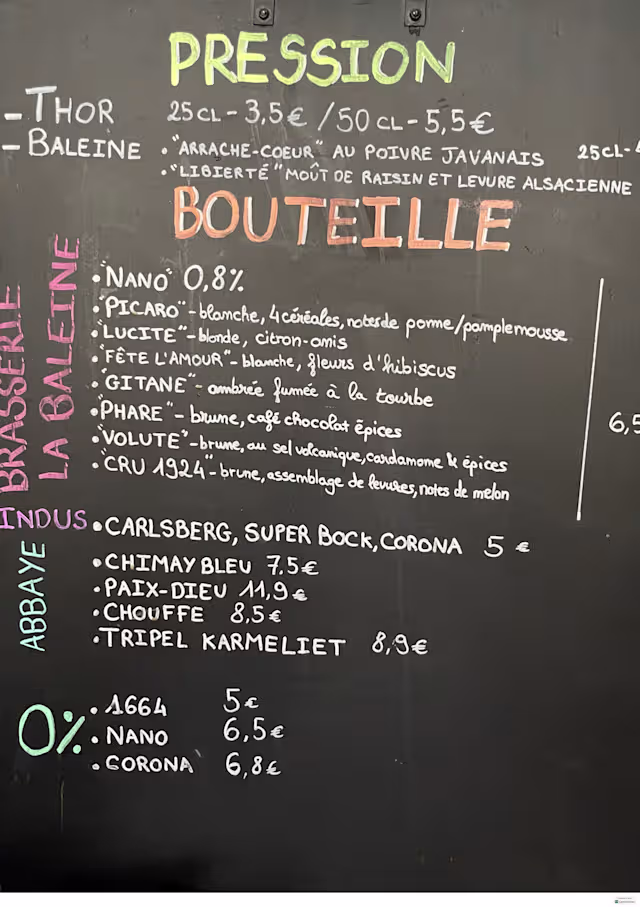 PRESSION
- THOR 25 CL - 3,5€ / 50 CL - 5,5€
- BALEINE • "ARRACHE-COEUR" AU POIVRE JAVANAIS 25CL-
• "LIBIERTÉ" MOÛT DE RAISIN ET LEVURE ALSACIENNE
BOUTEILLE
BRASSERIE
LA BALEINE
• "NANO" 0,8%
• "PICARO" - blanche, 4 céréales, notes de pome/pamplemousse
• "LUCITE" - blonde, citron-anis
• "FÊTE L'AMOUR" - blanche, fleurs d'hibiscus
• "GITANE" - ambrée fumée à la tourbe
• "PHARE" - brune, café chocolat épices
6,5
• "VOLUTE" - brune, au sel volcanique, cardamome & épices
• "CRU 1924" - brune, assemblage de levures, notes de melon
INDUS • CARLSBERG, SUPER BOCK, CORONA 5 €
ABBAYE
• CHIMAY BLEU 7,5€
• PAIX-DIEU 11,9€
• CHOUFFE 8,5€
• TRIPEL KARMELIET 8,9€
0%
• 1664 5€
• NANO 6,5€
• CORONA 6,8€